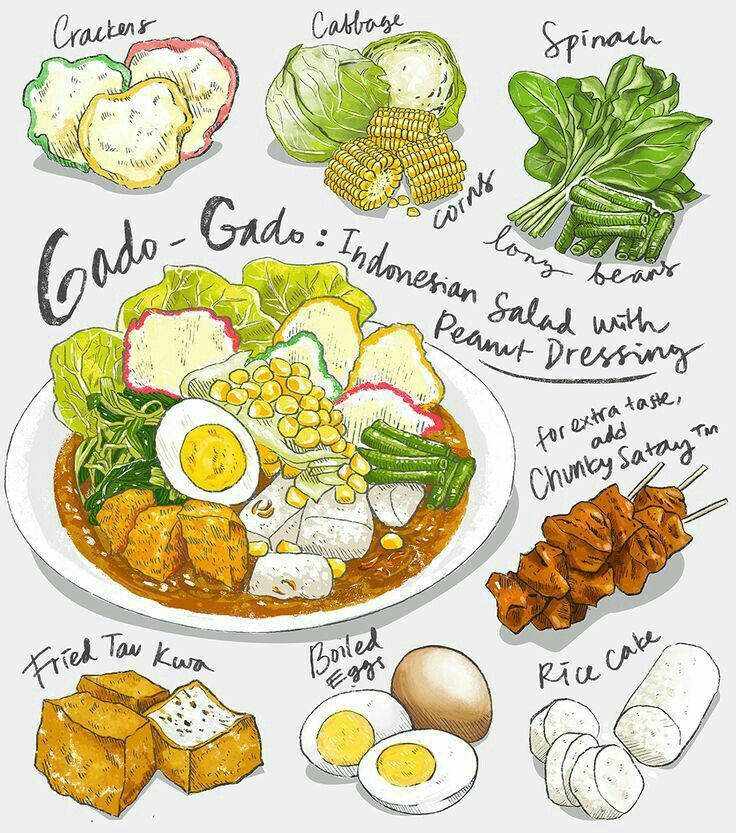 Crackers
Cabbage
corns
Spinach
long beans
Gado-Gado: Indonesian Salad with
Peanut Dressing
for extra taste,
add
Chunky Satay™
Fried Tau Kwa
Boiled
Eggs
Rice Cake